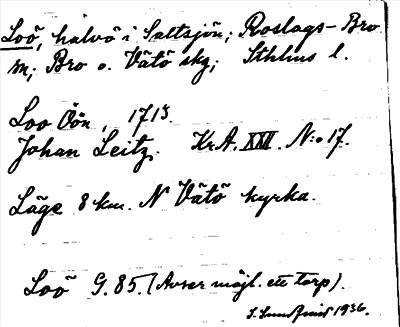 Loö, halvö i Saltsjön; Roslags-Bro
sn; Bro o. Vätö skg; Sthlms l.
Loo Öön, 1715.
Johan Leitz. Kr.A. XXVI. N:o 17.
Läge 8 km. N Vätö kyrka.
Loö G. 85. (Avser möjl. ett torp).
I. Lundquist 1936.